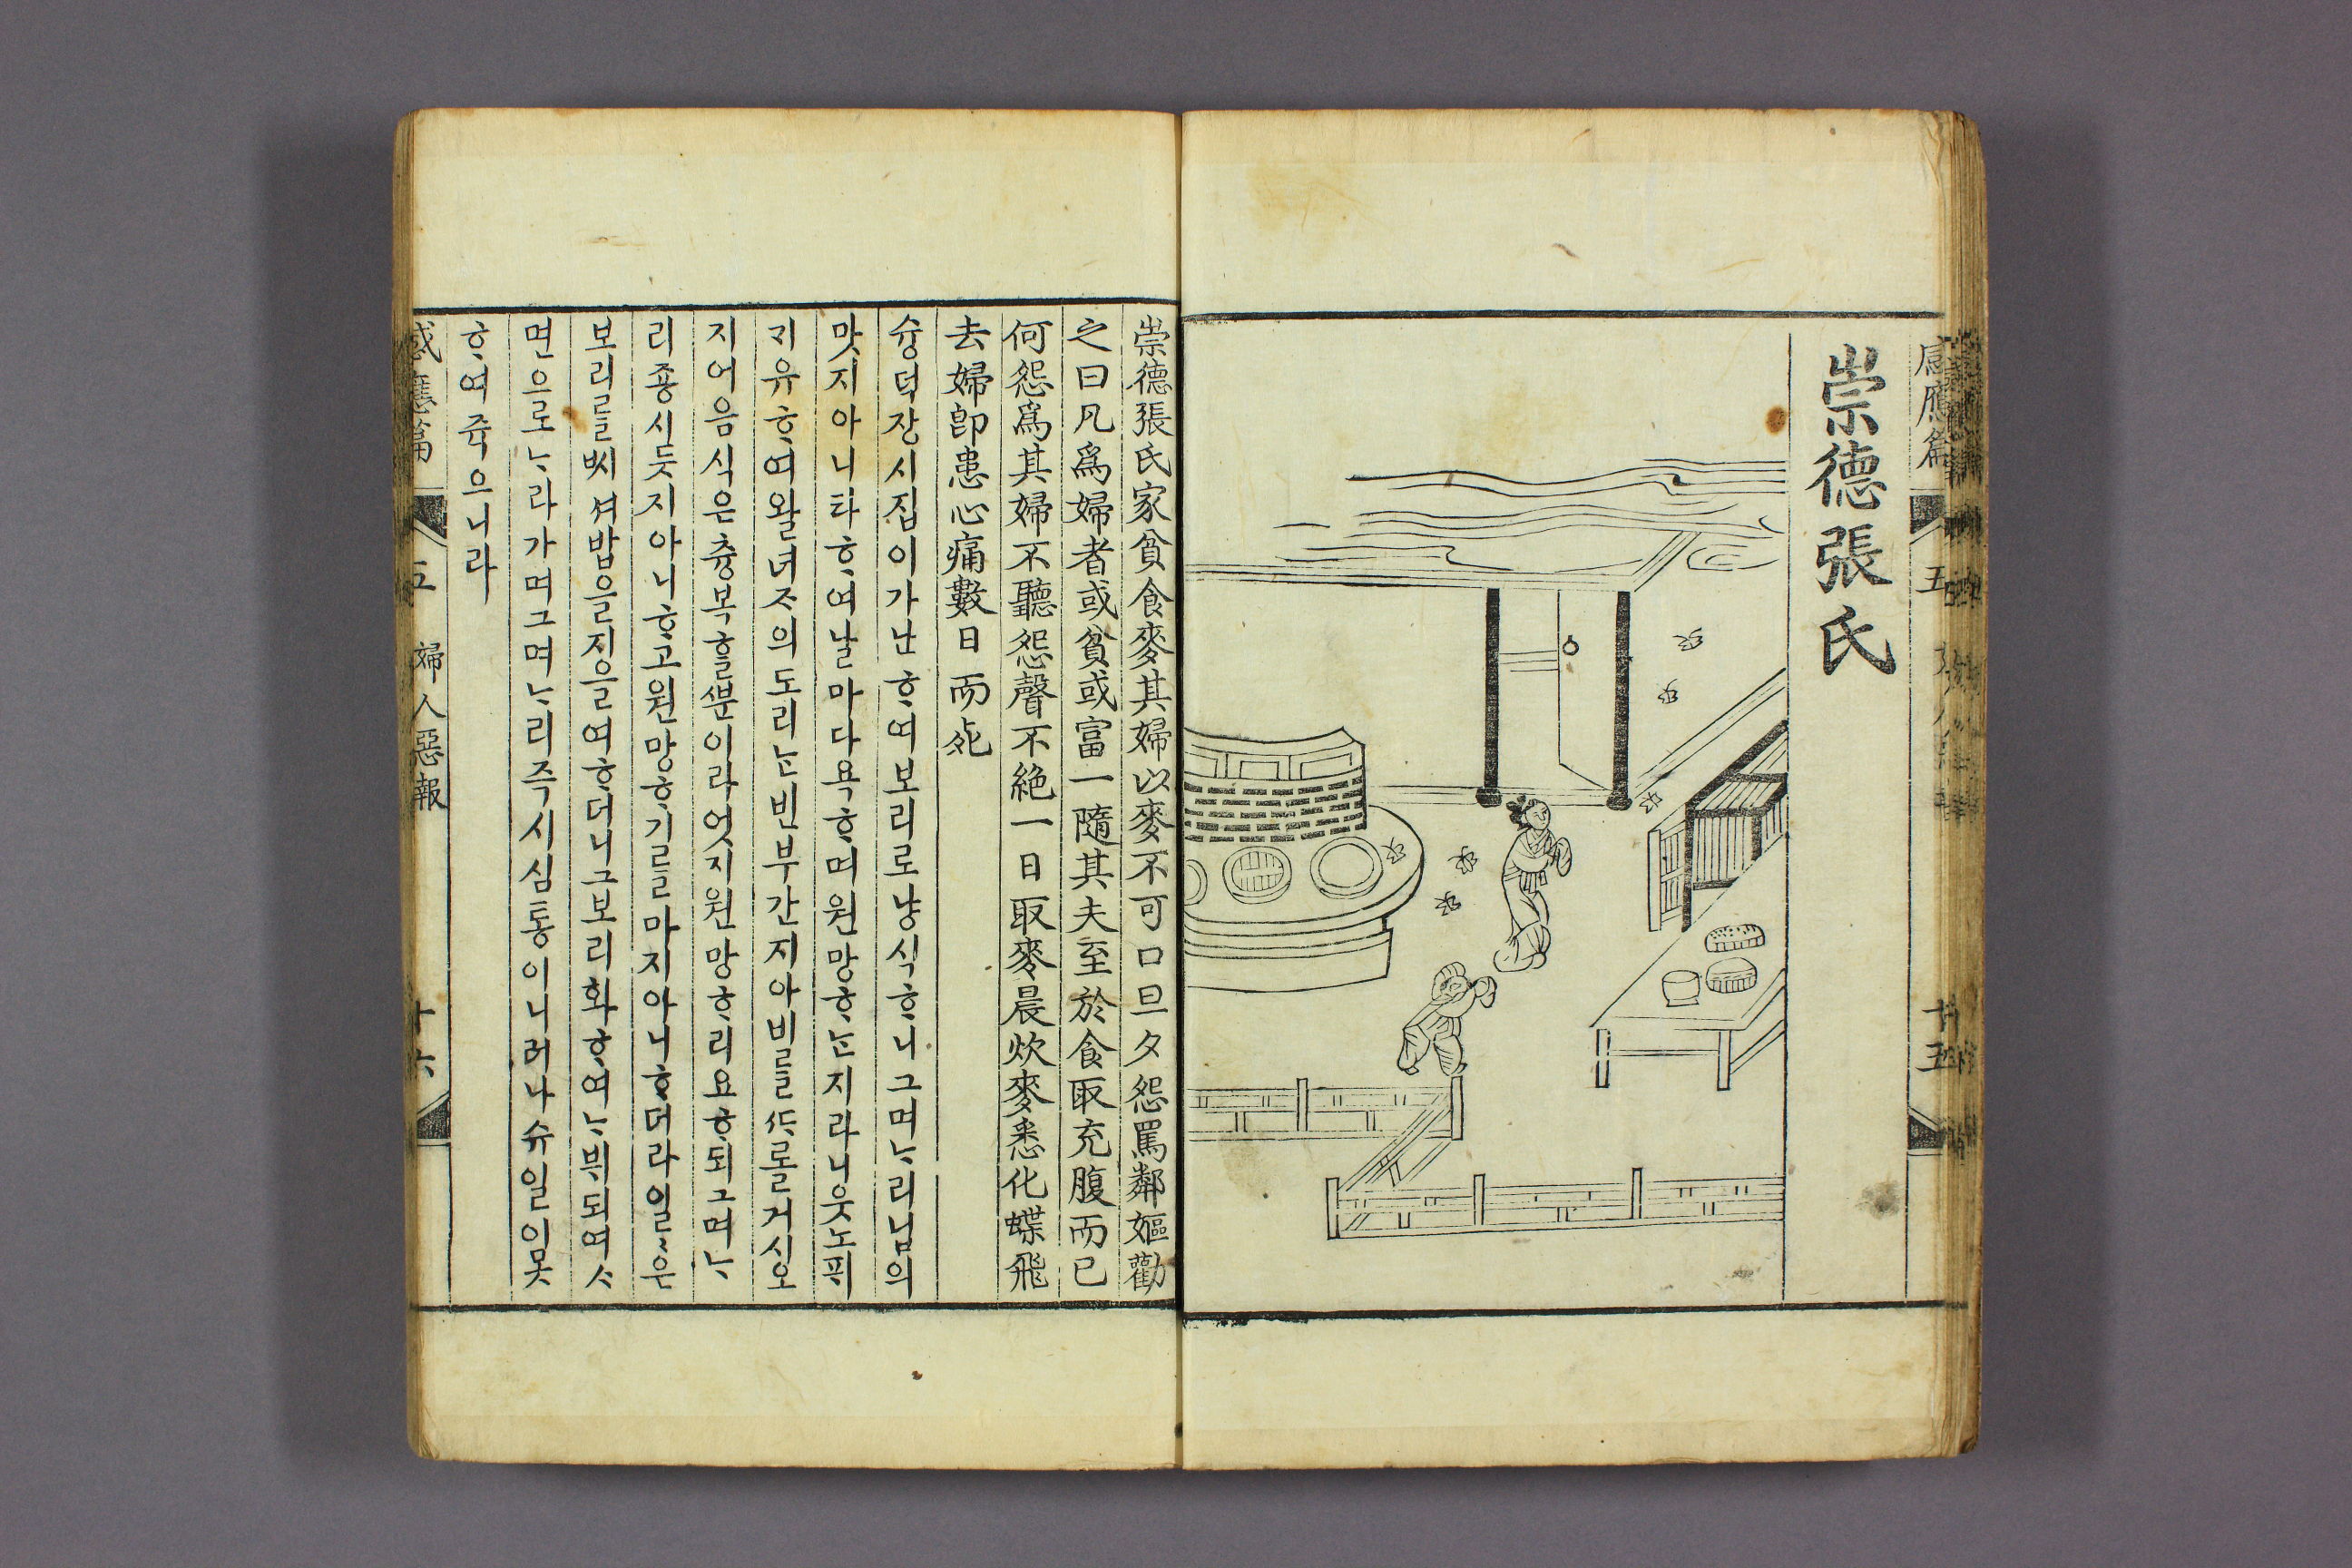 感應篇 五 十五
崇德張氏
崇德張氏家貧食麥其婦以麥不可口旦夕怨罵鄰嫗勸
之曰凡爲婦者或貧或富一隨其夫至於食取充腹而已
何怨爲其婦不聽怨聲不絶一日取麥晨炊麥悉化蝶飛
去婦卽患心痛數日而死
슝덕장시집이가난ᄒᆞ여보리로냥식ᄒᆞ니그며ᄂᆞ리님의
맛지아니타ᄒᆞ여날마다욕ᄒᆞ며원망ᄒᆞᄂᆞᆫ지라니웃노ᄑᆡ
ᄀᆡ유ᄒᆞ여왈녀ᄌᆞ의도리ᄂᆞᆫ빈부간지아비를ᄯᆞ롤거시오
지어음식은츙복ᄒᆞᆯᄲᅮᆫ이라엇지원망ᄒᆞ리요ᄒᆞ되그며ᄂᆞ
리죵시듯지아니ᄒᆞ고원망ᄒᆞ기를마지아니ᄒᆞ더라일〻은
보리를ᄡᅵ셔밥을지을여ᄒᆞ더니그보리화ᄒᆞ여ᄂᆞᄇᆡ되여ᄉᆞ
면으로ᄂᆞ라가며그며ᄂᆞ리즉시심통이니러나슈일이못
ᄒᆞ여쥭으니라
感應篇 五 婦人惡報 十六